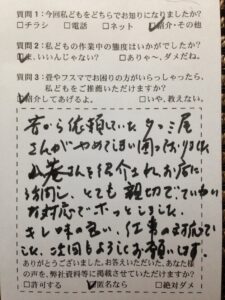 質問1:今回私どもをどちらでお知りになりましたか?
□チラシ □電話 □ネット ☑紹介・その他
質問2:私どもの作業中の態度はいかがでしたか?
☑ま、いいんじゃない? □ありゃ~、ダメだね。
質問3:畳やフスマでお困りの方がいらっしゃったら、
私どもを推薦いただけますか?
☑紹介してあげるよ。 □いや、教えない。
昔から依頼していたタタミ屋
さんがやめてしまい困っておりました
さんを紹介されお店に
訪問し、とても親切でていねい
な対応でホッとしました。
キレ味の良い、仕事の対応でし
た、次回もよろしくお願いします。
ありがとうございました。お答えいただいた、あなた様
の声を、弊社資料等に掲載させていただけますか?
□許可する ☑匿名なら □絶対ダメ